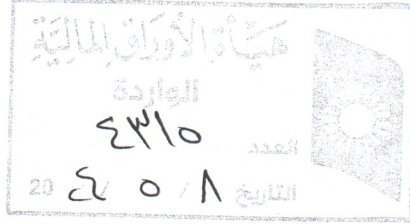 هيأة الأوراق المالية
الواردة
العدد ٤٣١٥
التاريخ ٨ / ٥ / ٢٤ 20